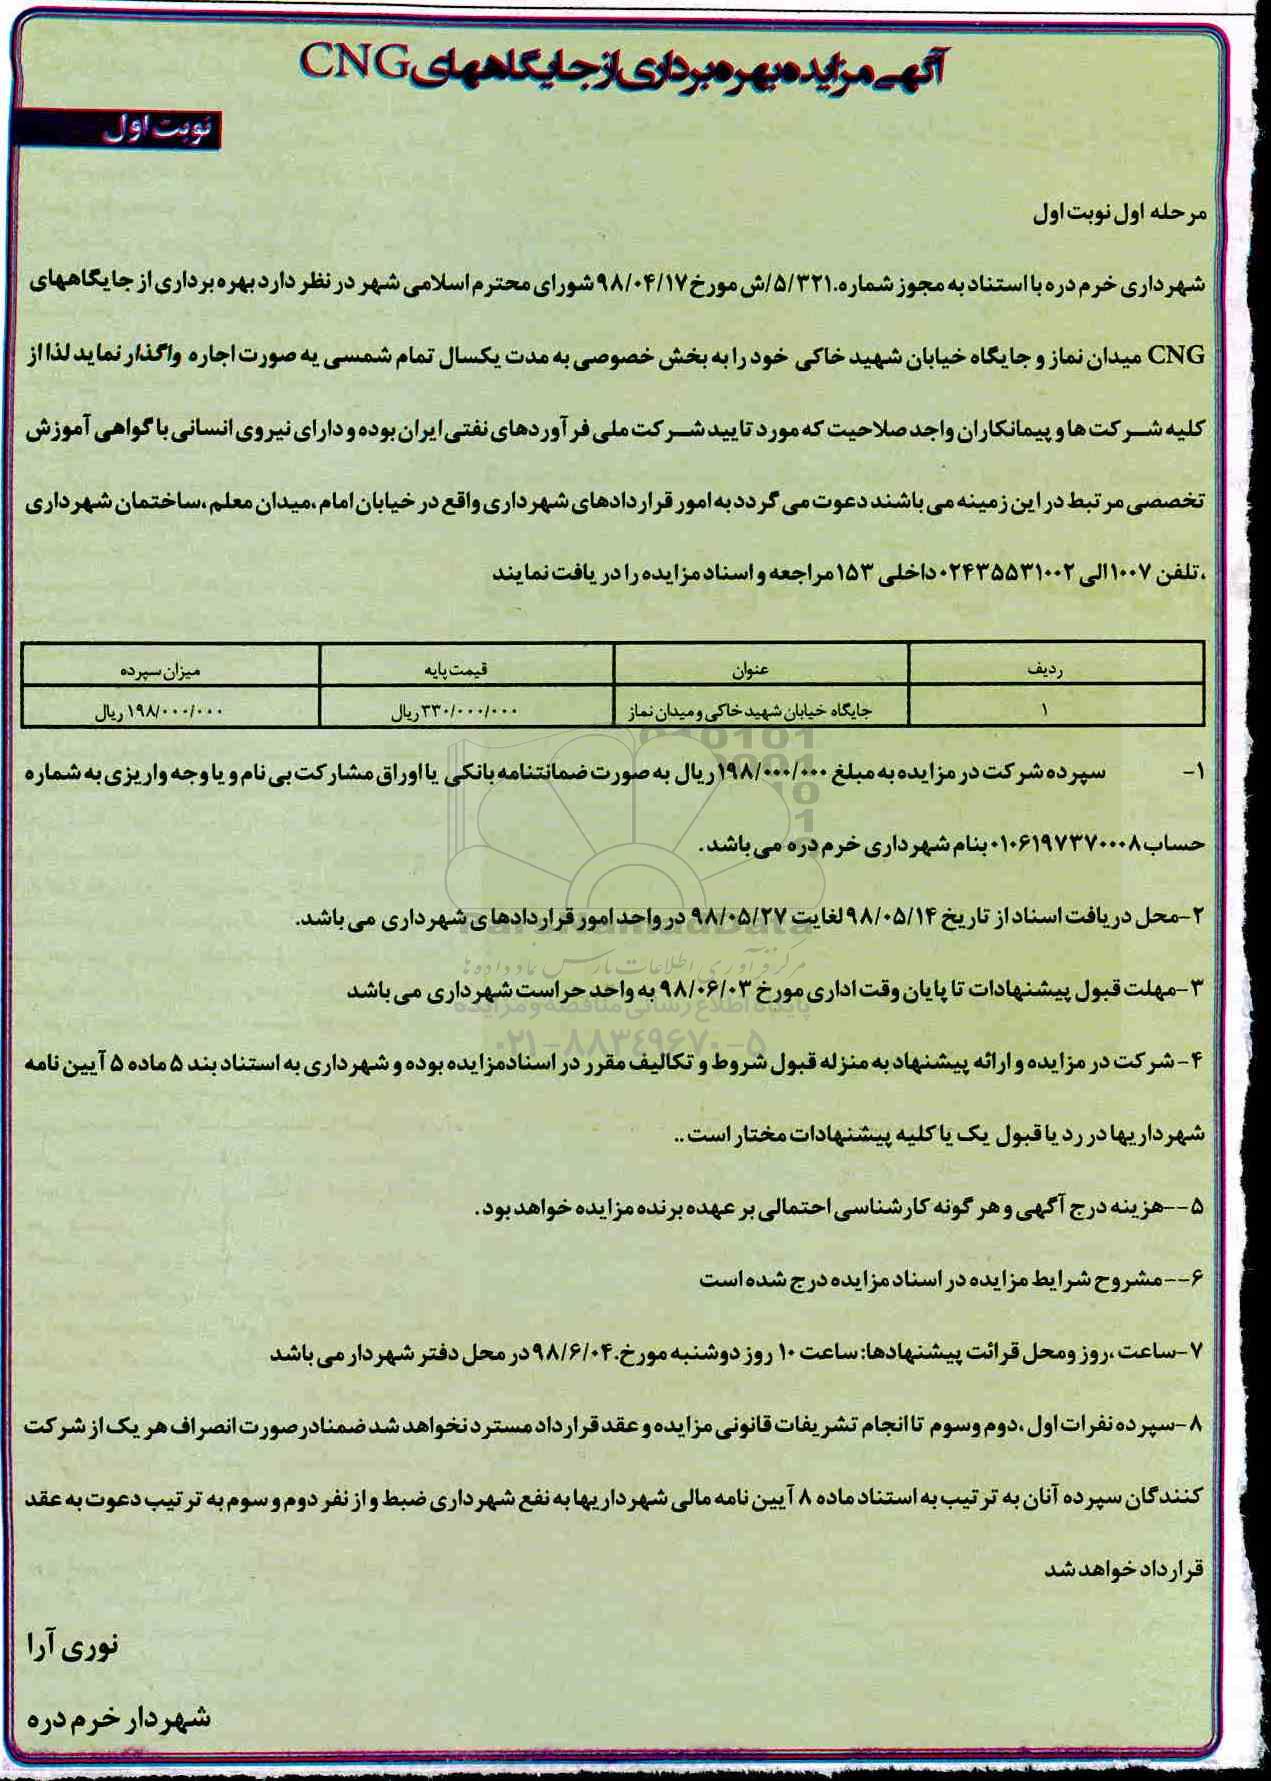 آگهی مزایده بهره برداری از جایگاههای CNG
نوبت اول
مرحله اول نوبت اول
شهرداری خرم دره با استناد به مجوز شماره.۵/۳۲۱/ش مورخ ۹۸/۰۴/۱۷ شورای محترم اسلامی شهر در نظر دارد بهره برداری از جایگاههای
CNG میدان نماز و جایگاه خیابان شهید خاکی خود را به بخش خصوصی به مدت یکسال تمام شمسی یه صورت اجاره واگذار نماید لذا از
کلیه شرکت ها و پیمانکاران واجد صلاحیت که مورد تایید شرکت ملی فرآوردهای نفتی ایران بوده و دارای نیروی انسانی با گواهی آموزش
تخصصی مرتبط در این زمینه می باشند دعوت می گردد به امور قراردادهای شهرداری واقع در خیابان امام ،میدان معلم ،ساختمان شهرداری
،تلفن ۱۰۰۷الی ۰۲۴۳۵۵۳۱۰۰۲داخلی ۱۵۳مراجعه و اسناد مزایده را دریافت نمایند
ردیف عنوان قیمت پایه میزان سپرده
۱ جایگاه خیابان شهید خاکی و میدان نماز ۳۳۰/۰۰۰/۰۰۰ریال ۱۹۸/۰۰۰/۰۰۰ ریال
۱- سپرده شرکت در مزایده به مبلغ ۱۹۸/۰۰۰/۰۰۰ریال به صورت ضمانتنامه بانکی یا اوراق مشارکت بی نام و یا وجه واریزی به شماره
حساب۰۱۰۶۱۹۷۳۷۰۰۰۸بنام شهرداری خرم دره می باشد.
۲-محل دریافت اسناد از تاریخ ۹۸/۰۵/۱۴لغایت ۹۸/۰۵/۲۷ در واحد امور قراردادهای شهرداری می باشد.
ParsNamadData
مرکز فرآوری اطلاعات پارس نماد داده ها
۳-مهلت قبول پیشنهادات تا پایان وقت اداری مورخ ۹۸/۰۶/۰۳ به واحد حراست شهرداری می باشد
پایگاه اطلاع رسانی مناقصه و مزایده
۰۲۱-۸۸۳۴۹۶۷۰-۵
۴-شرکت در مزایده و ارائه پیشنهاد به منزله قبول شروط و تکالیف مقرر در اسنادمزایده بوده و شهرداری به استناد بند ۵ ماده ۵ آیین نامه
شهرداریها در رد یا قبول یک یا کلیه پیشنهادات مختار است ..
۵--هزینه درج آگهی و هر گونه کارشناسی احتمالی بر عهده برنده مزایده خواهد بود.
۶--مشروح شرایط مزایده در اسناد مزایده درج شده است
۷-ساعت ،روز ومحل قرائت پیشنهادها: ساعت ۱۰ روز دوشنبه مورخ.۹۸/۶/۰۴ در محل دفتر شهردار می باشد
۸-سپرده نفرات اول ،دوم وسوم تا انجام تشریفات قانونی مزایده و عقد قرارداد مسترد نخواهد شد ضمنادرصورت انصراف هر یک از شرکت
کنندگان سپرده آنان به ترتیب به استناد ماده ۸ آیین نامه مالی شهرداریها به نفع شهرداری ضبط و از نفر دوم و سوم به ترتیب دعوت به عقد
قرارداد خواهد شد
نوری آرا
شهردار خرم دره